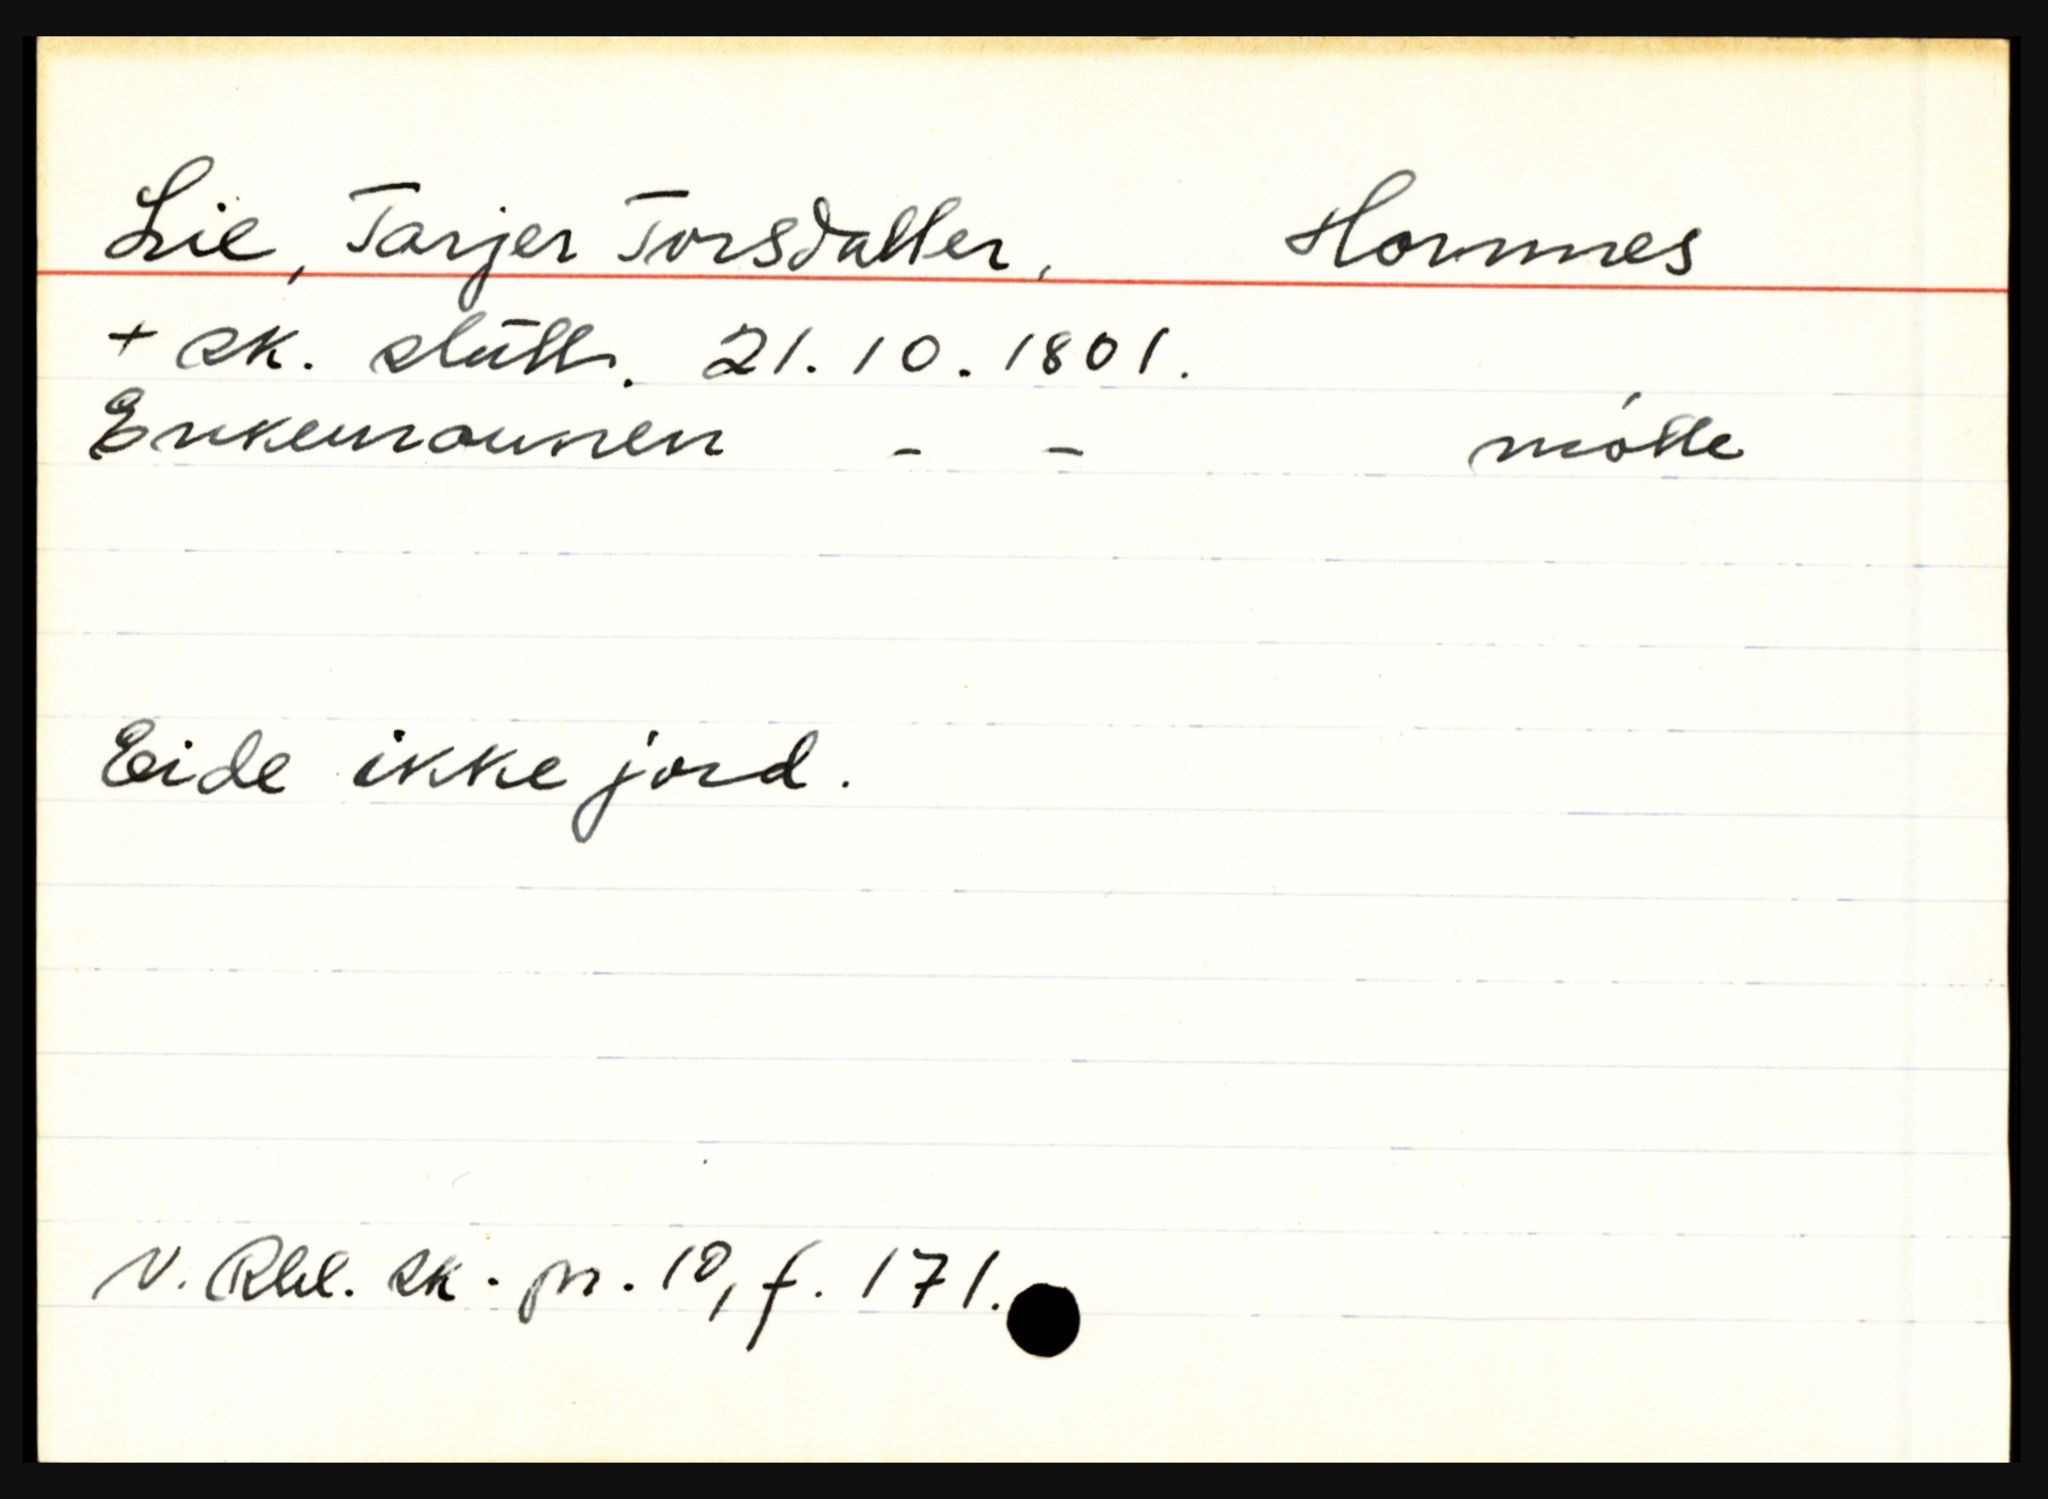 Lie, Tarjer Torsdatter, Hornnes
+ sk. slutt. 21.10.1801.
Enkemannen - - møtte
Eide ikke jord.
N. Rbl. sk. pr. 10, f. 171.